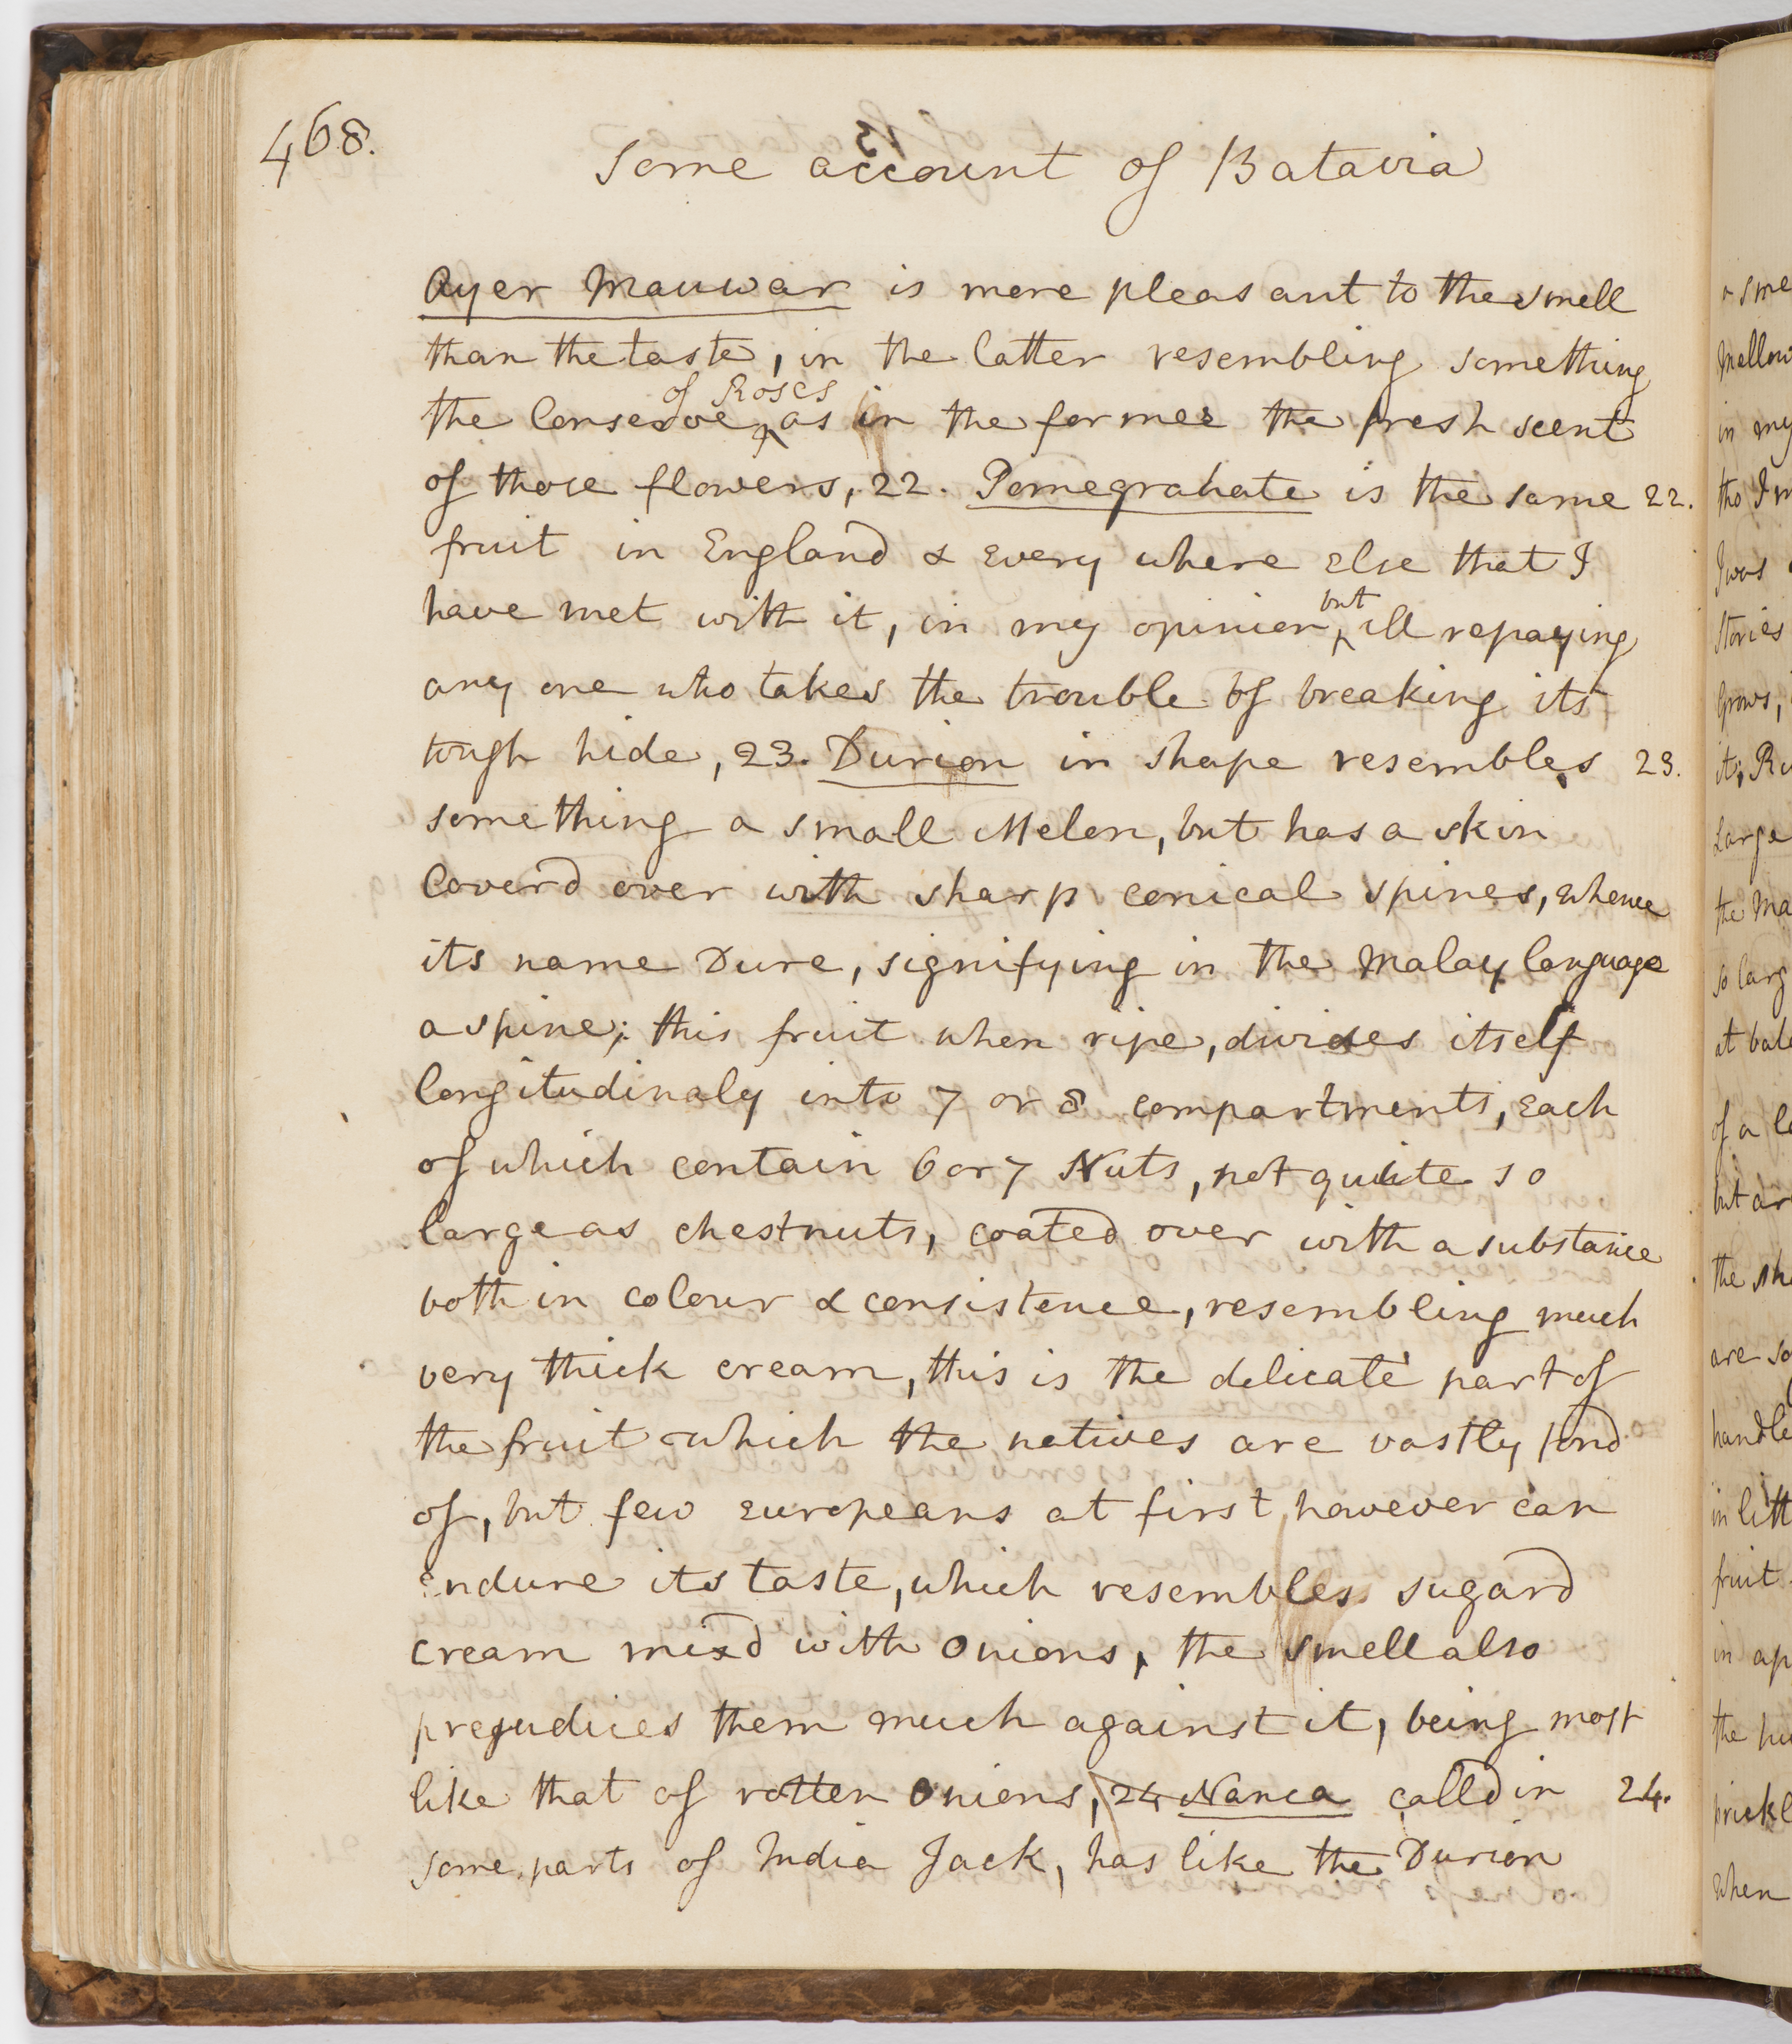 468.
Some account of Batavia
Ayer Mauwar is more pleasant to the smell
than the taste, in the latter resembling something
of Roses
the Conserve ^ as in the former the fresh scent
of those flowers, 22. Pomegranate is the same 22.
fruit in England & Every where Else that I
but
have met with it, in my opinion, ^ ill repaying
any one who takes the trouble of breaking its
tough hide, 23. Durion in shape resembles 23.
something a small Melon, but has a skin
Coverd over with sharp conical spines, whence
its name Dure, signifying in the Malay language
a spine; this fruit when ripe, divides itself
longitudinaly into 7 or 8 compartments, Each
of which contain 6 or 7 Nuts, not quite so
large as chestnuts, coated over with a substance
both in colour & consistence, resembling much
very thick cream, this is the delicate part of
the fruit which the natives are vastly fond
of, but few Europeans at first, however can
Endure its taste, which resembles sugard
cream mixd with Onions, the smell also
prejudices them much against it, being most
like that of rotten Onions, 24 Nanca calld in 24.
some parts of India Jack, has like the Durion
in my
Stories
Grows,
Large
the
so larg
of a
but
the
are so
handle
fruit
in
the
prickl
when